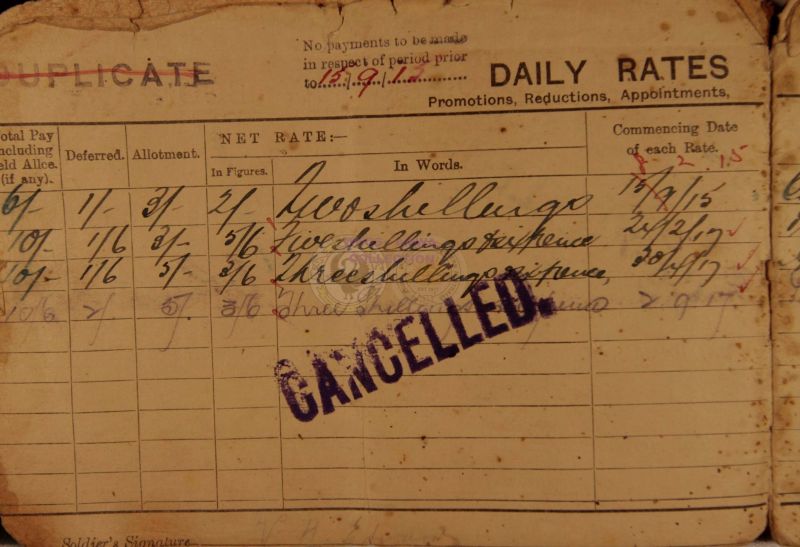 DUPLICATE
No payments to be made
in respect of period prior
to 15/9/15
DAILY RATES
Promotions, Reductions, Appointments,
Total Pay including Field Allce. (if any).
Deferred.
Allotment.
NET RATE:—
In Figures.
In Words.
Commencing Date of each Rate.
8 . 2 . 15
6/- 1/- 3/- 2/- Two shillings 15/9/15
10/- 1/6 3/- 5/6 Five shillings & sixpence 24/2/17
10/- 1/6 5/- 3/6 Three shillings sixpence 30/4/17
10/6 2/- 5/- 3/6 Three shillings sixpence 2.9.17
COLLECTION
CANCELLED.
Soldier's Signature